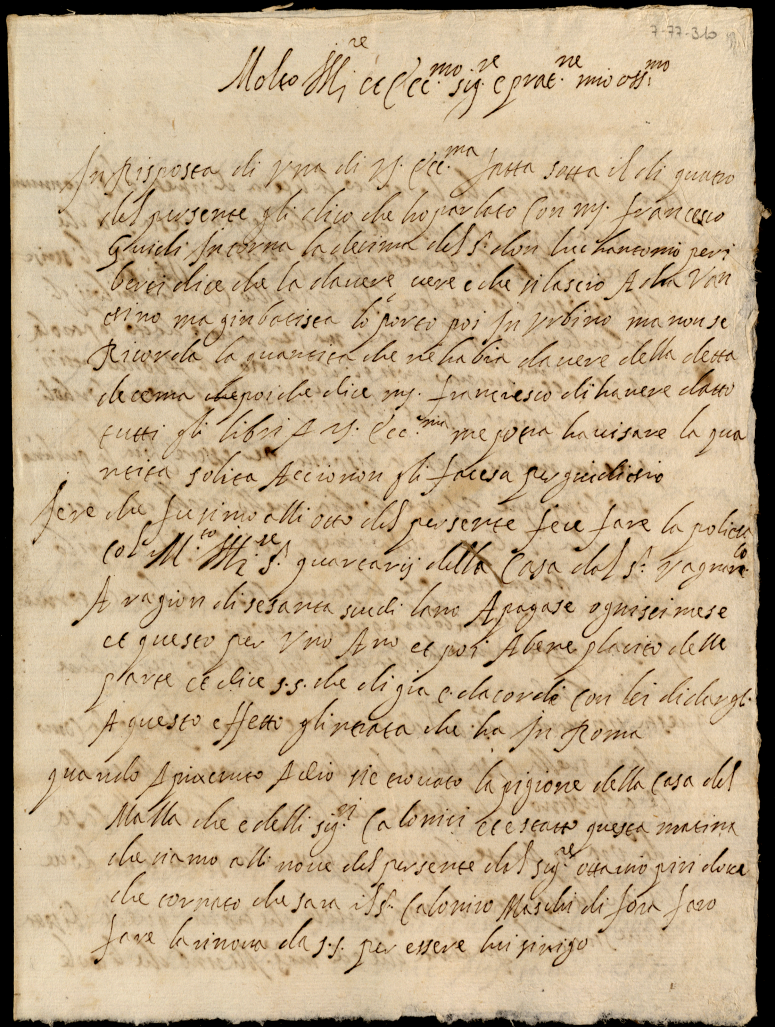 7-77-310
Molto Ill.re et Ecc.mo sig.re e prat.ne mio oss.mo
In Risposta di Vna di VS. Ecc.ma fatta sotta il di quatro
del persente gli dico che ho parlato Con ms. francesco
Guidi Intorna la decima del S.r don luchantonio peri
berei dice che la davere vere e che rilascio A
tino ma ginbatista lo porto poi In Vrbino ma non se
Ricorda la quantita che ne habia davere della detta
decema poi che dice ms. francesco di havere datto
tutti gli libri A VS. Ecc.ma me potra havisare la qua
ntita solita Accio non gli facesa perguiditio
Iere che fusimo alli otto del persente fece fare la polici
Col M.to Ill.re S.r guartarij della Casa del S.r
A ragion di sesanta scudi lano A pagase ogni sei mese
et questo per Vno Ano et poi A bene placito delle
parte et dice s.s. che di gia e dacordi con lei di dargli
A questo effetto glintrata che ha In Roma
quando A piaciuto A dio sie trovato la pigione della Casa del
Malla che e delli sig.ri Calonici et e statto questa matina
che siamo alli nove del persente del sig.re ottavio pin
che tornato che sara il S.r Calonico Maschi di fora faro
fare la rinova da s.s. per essere lui sinigo